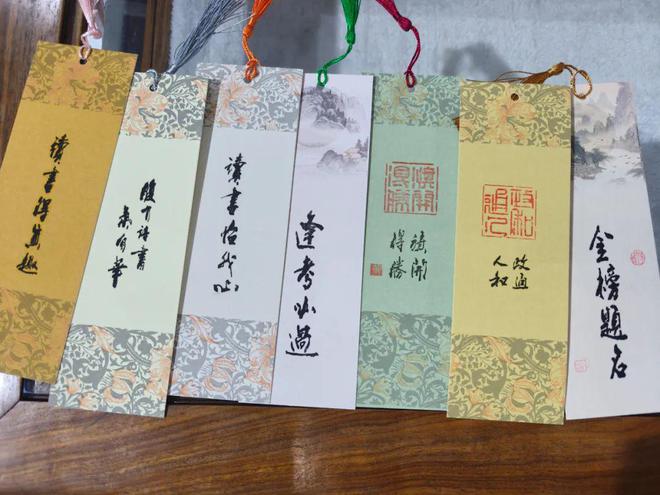 讀書得真趣
腹有詩書
氣自華
讀書怡我心
逢考必過
旗開
得勝
旗開
得勝
政通
人和
金榜題名